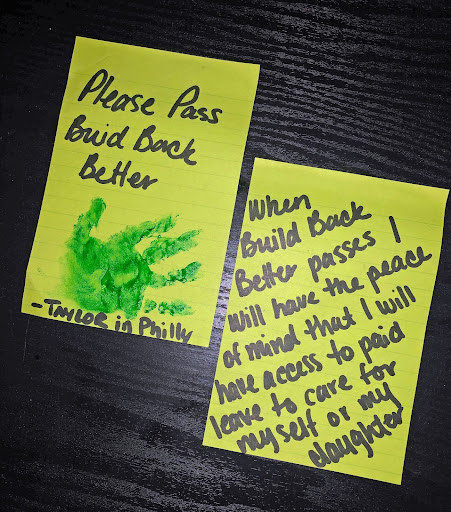 Please Pass
Buid Back
Better
-TAYLOR in Philly
When
Build Back
Better passes I
will have the peace
of mind that I will
have access to paid
leave to care for
myself or my
daughter